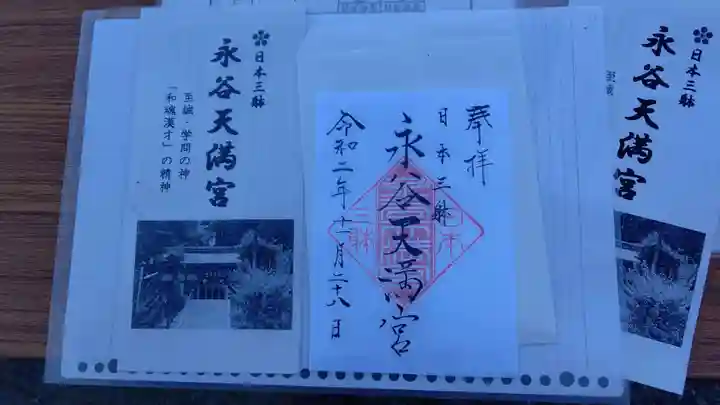 日本三躰
永谷天満宮
至誠・学問の神
「和魂漢才」の精神
奉拝
日本三躰
永谷天満宮
令和二年十一月二十八日
日本三躰
永谷天満宮